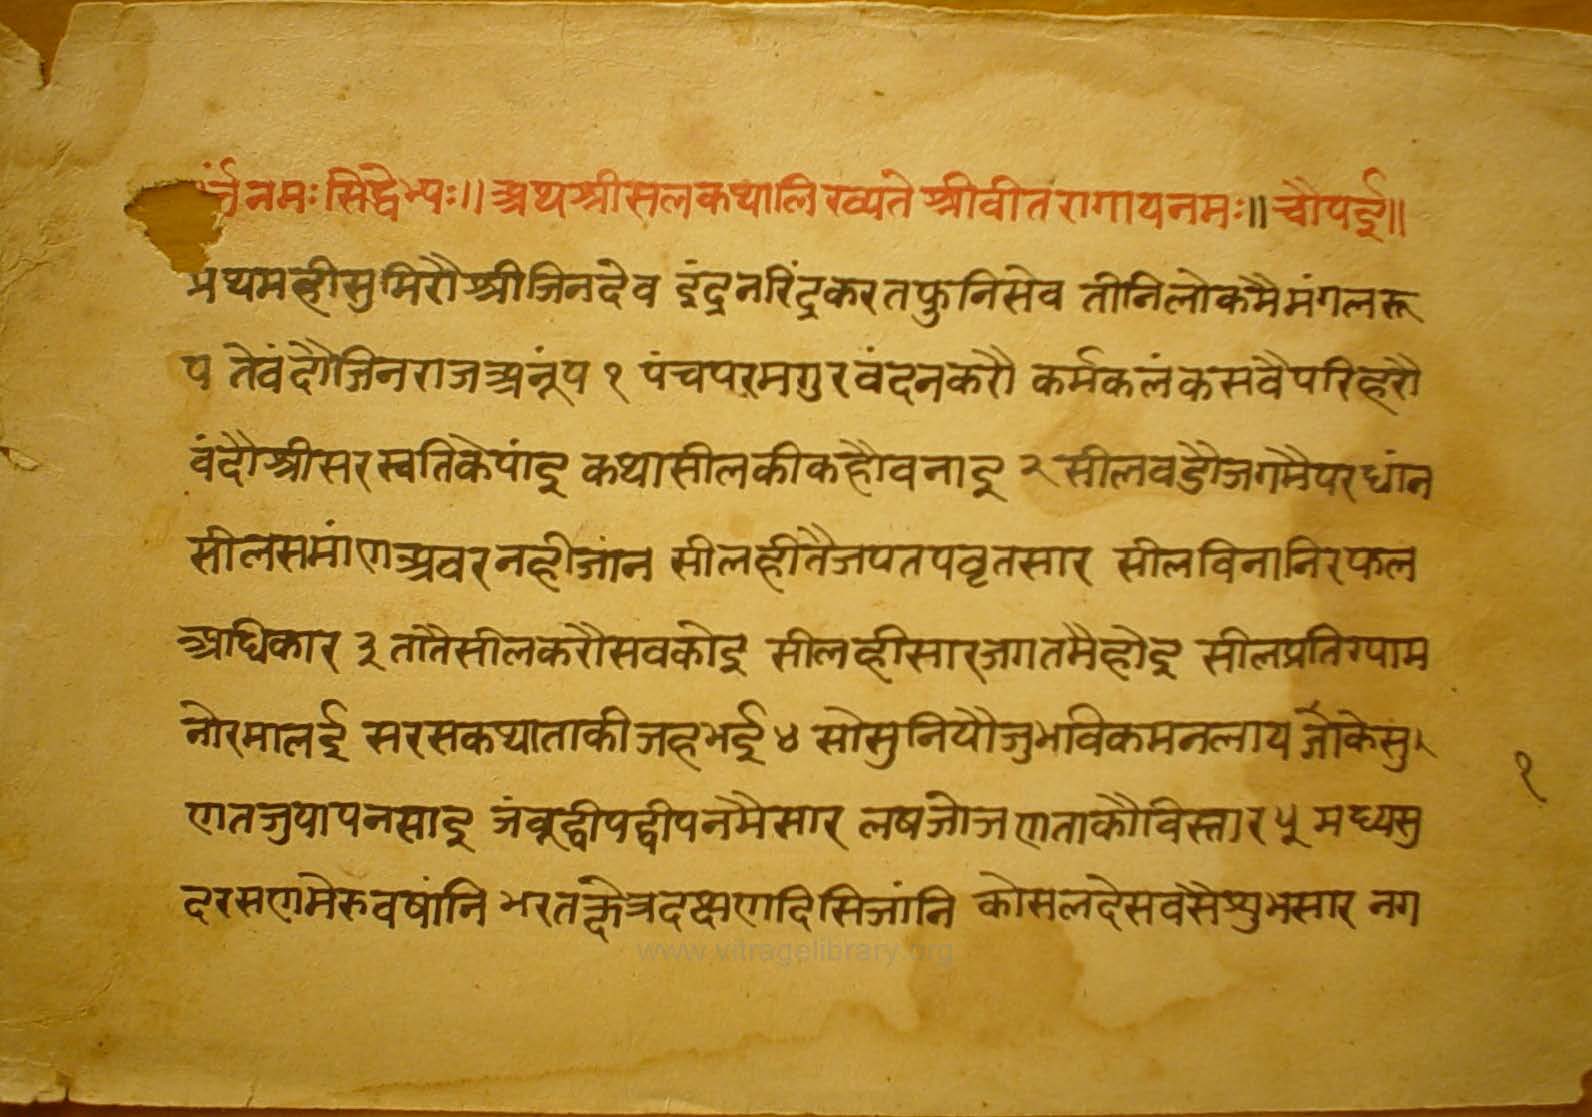 नमः सिद्धेभ्यः॥ अथ श्री सल कथा लिख्यते श्री वीतरागाय नमः॥ चौपई॥
प्रथम ही सुमिरौ श्री जिनदेव इंद्र नरिंद्र करत फुनि सेव तीनि लोक मै मंगल रू
प ते वंदौ जिनराज अनूंप १ पंच परम गुर वंदन करौ कर्म कलंक सवै परिहरौ
वंदौ श्री सरस्वति के पांइ कथा सील की कहौ वनाइ २ सील वडौ जग मै परधांन
सील समांण अवर नही जांन सील ही तै जप तप वृत सार सील विना निरफल
अधिकार ३ तातै सील करौ सव कोइ सील ही सार जगत मै होइ सील प्रतिग्या म
नोरमा लई सरस कथा ताकी जह भई ४ सो सुनियौ जु भविक मन लाय जाके सु
णत जु पाप नसाइ जंवूद्वीप द्वीपन मै सार लष जोजण ताकौ विस्तार ५ मध्य सु
दरसण मेरु वषांनि भरत क्षेत्र दक्षण दिसि जांनि कोसल देस वसै शुभ सार नग
१
www.vitragelibrary.org